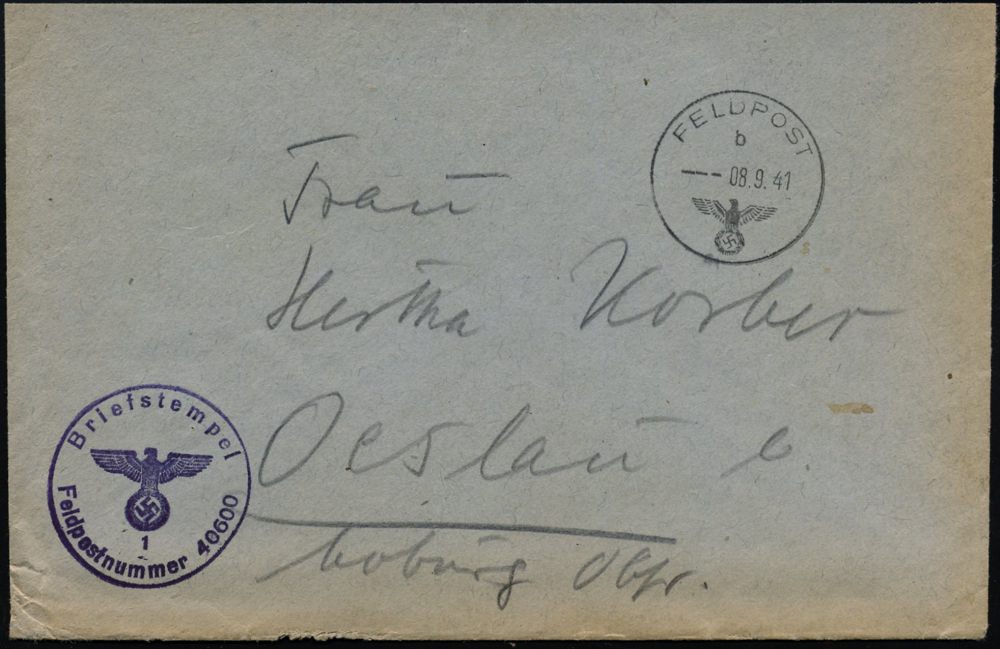 FELDPOST
b
--- 08.9.41
Frau
Hertha Korber
Oeslau b.
Coburg Obfr.
Briefstempel
1
Feldpostnummer 40600